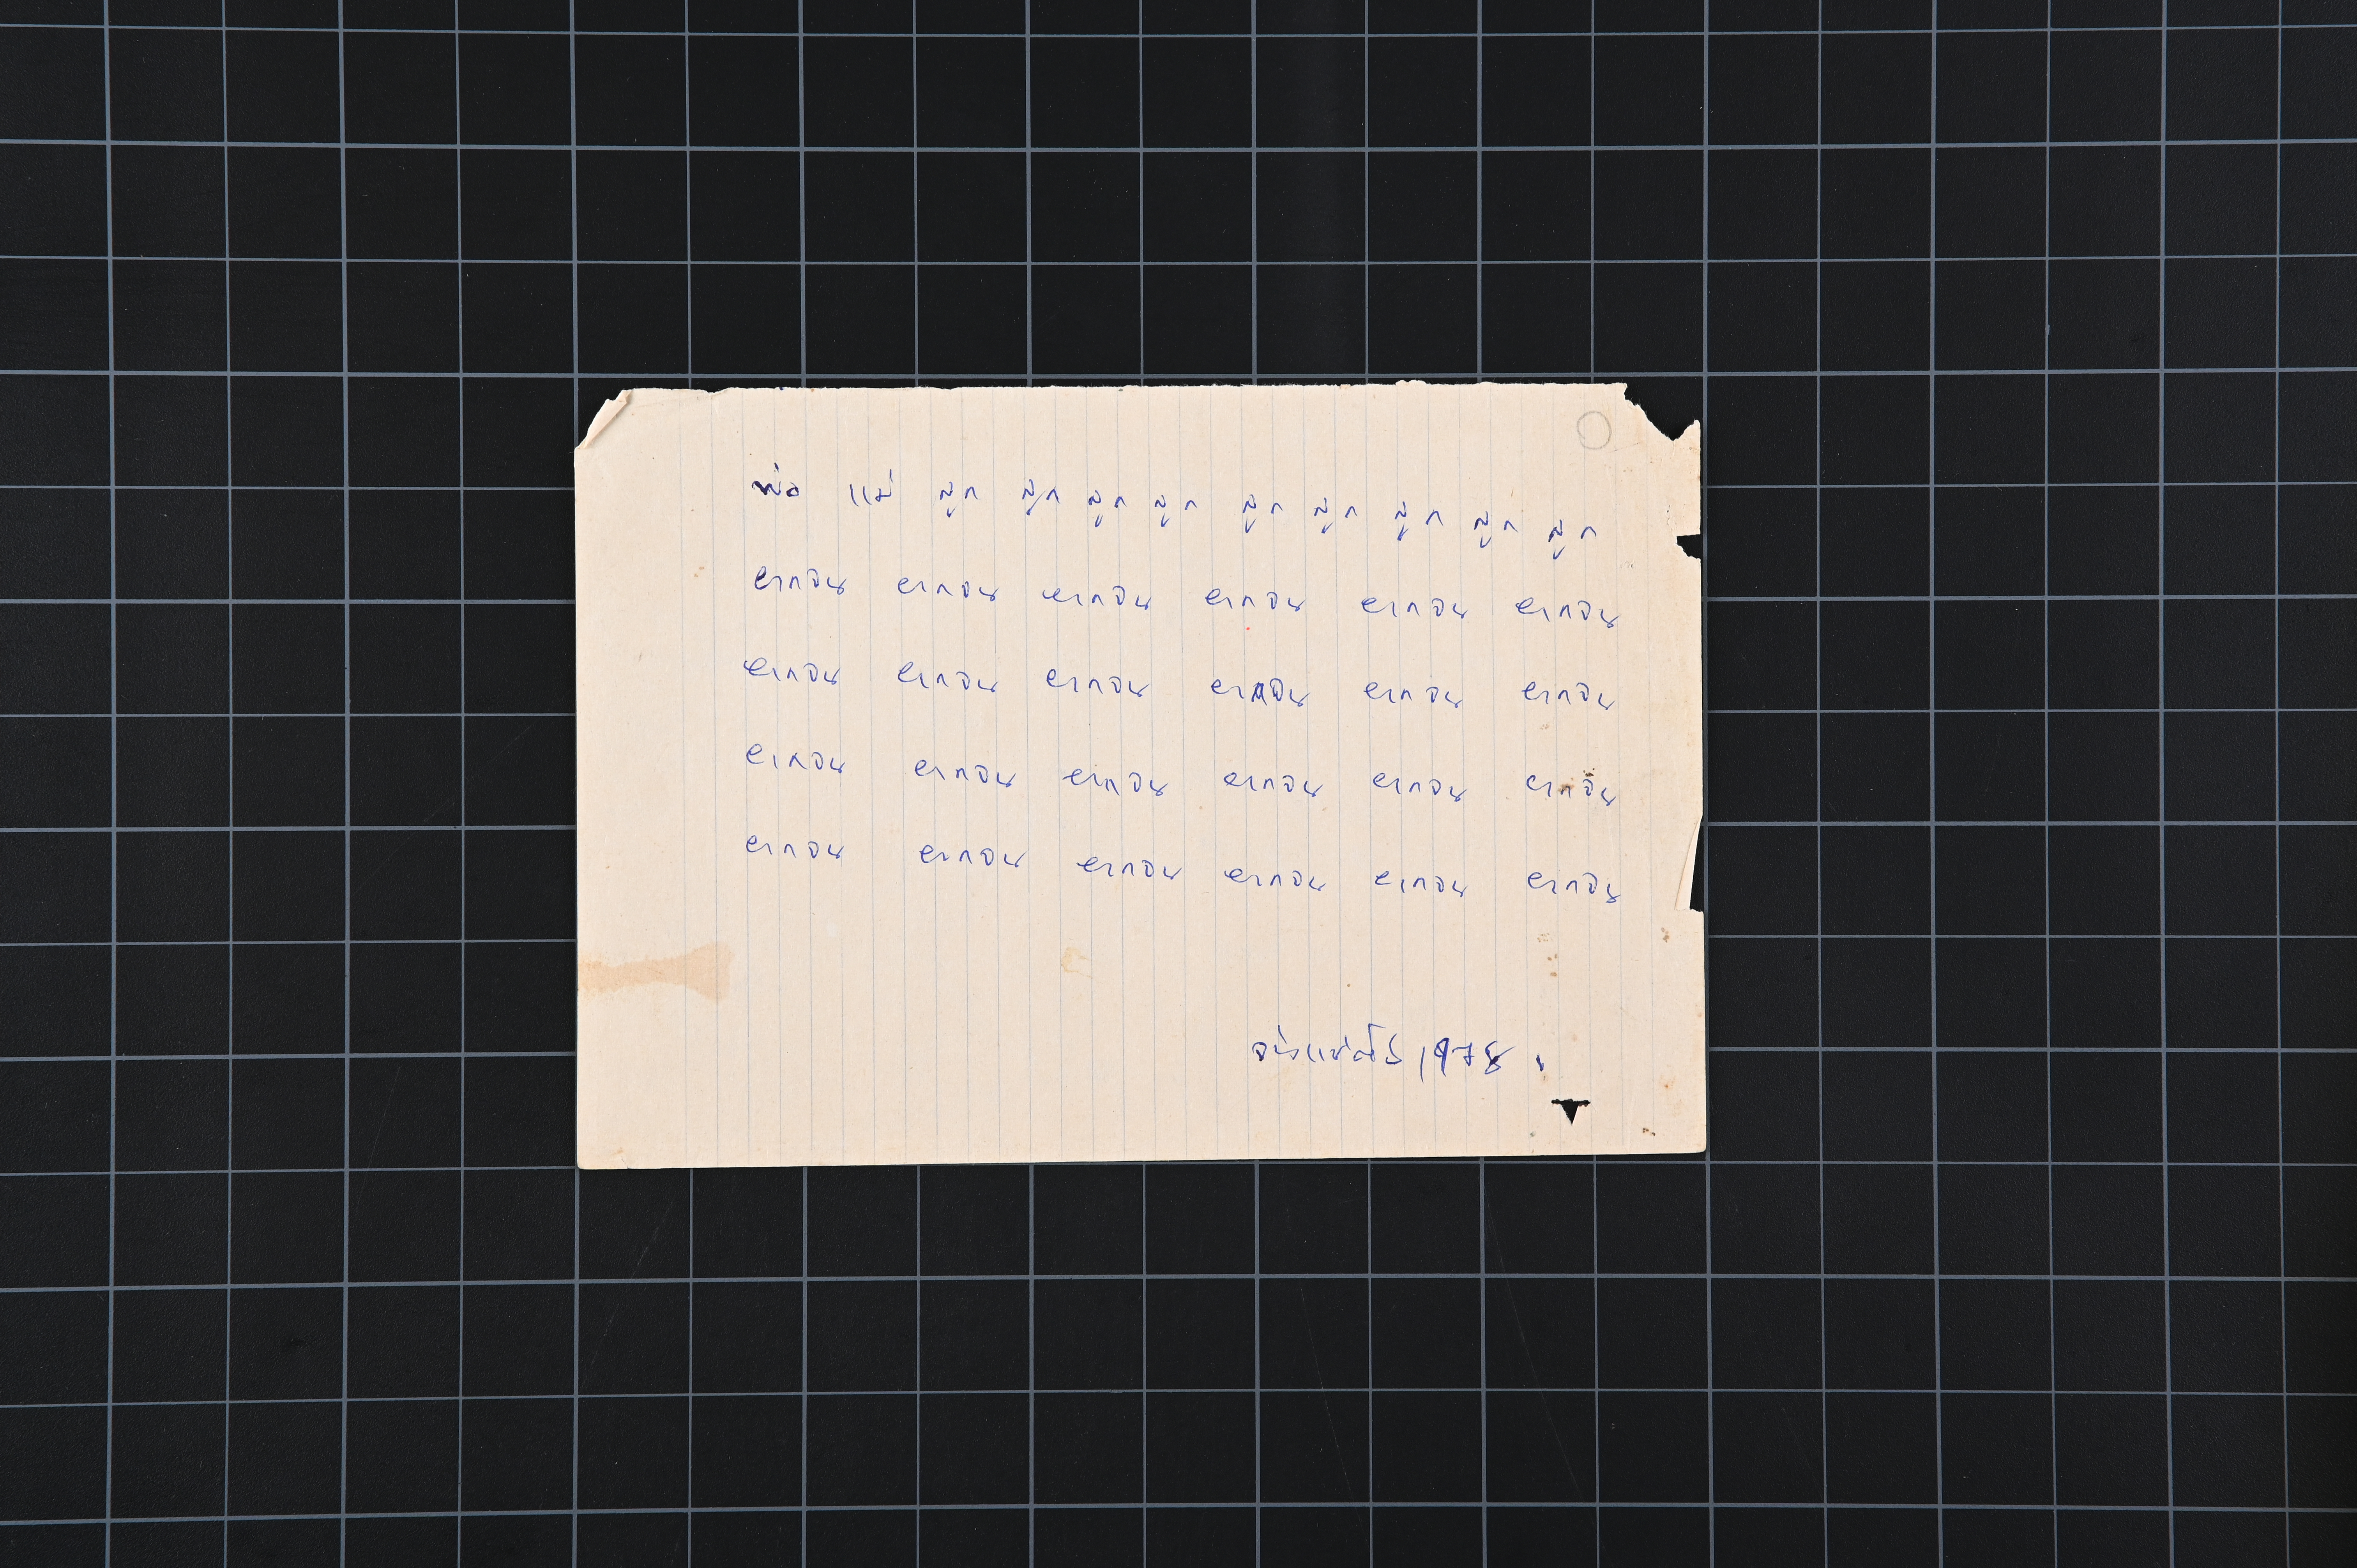 พ่อ แม่ ลูก ลูก ลูก ลูก ลูก ลูก ลูก ลูก ลูก
ยากจน ยากจน ยากจน ยากจน ยากจน ยากจน
ยากจน ยากจน ยากจน ยากจน ยากจน ยากจน
ยากจน ยากจน ยากจน ยากจน ยากจน ยากจน
ยากจน ยากจน ยากจน ยากจน ยากจน ยากจน
จ่างแซ่ตั้ง 1978.